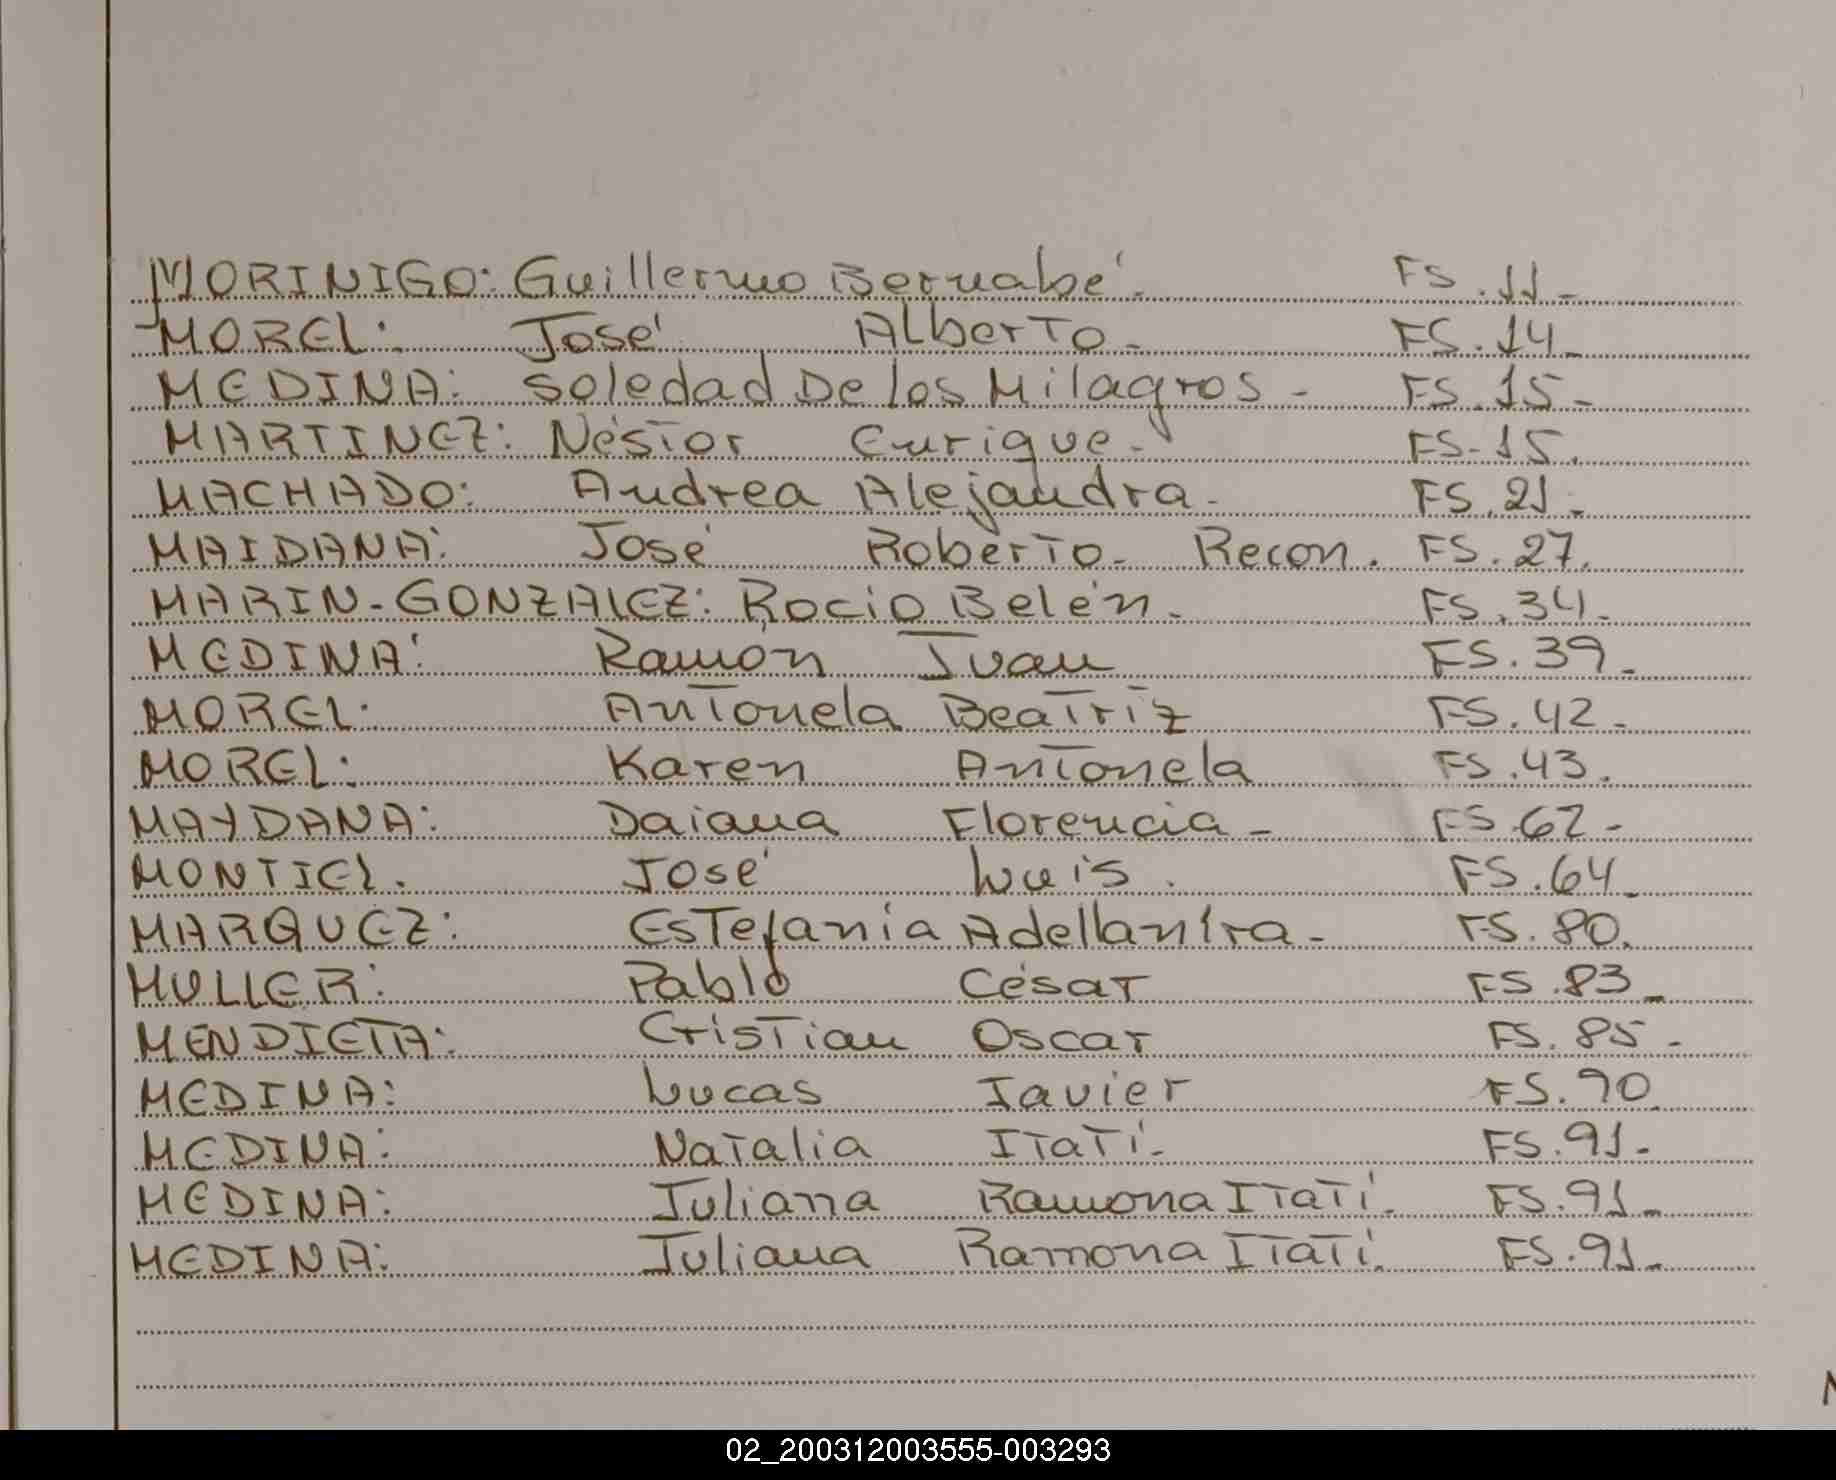 MORINIGO: Guillermo Bernabé. FS.11-
MOREL: José Alberto- FS.14-
MEDINA: Soledad De los Milagros- FS.15-
MARTINEZ: Néstor Enrique- FS-15.
MACHADO: Andrea Alejandra- FS.21-
MAIDANA: José Roberto- Recon. FS.27.
MARIN-GONZALEZ: Rocio Belén- FS.34-
MEDINA: Ramón Juan FS.39-
MOREL: Antonela Beatriz FS.42-
MOREL: Karen Antonela FS.43.
MAYDANA: Daiana Florencia- FS.62-
MONTIEL. José Luis. FS.64-
MARQUEZ: Estefania Adellanira- FS.80.
MULLER: Pablo César FS.83-
MENDIETA: Cristian Oscar FS.85-
MEDINA: Lucas Javier FS.90
MEDINA: Natalia Itatí- FS.91-
MEDINA: Juliana Ramona Itatí- FS.91-
MEDINA: Juliana Ramona Itatí. FS.91-
02_200312003555-003293